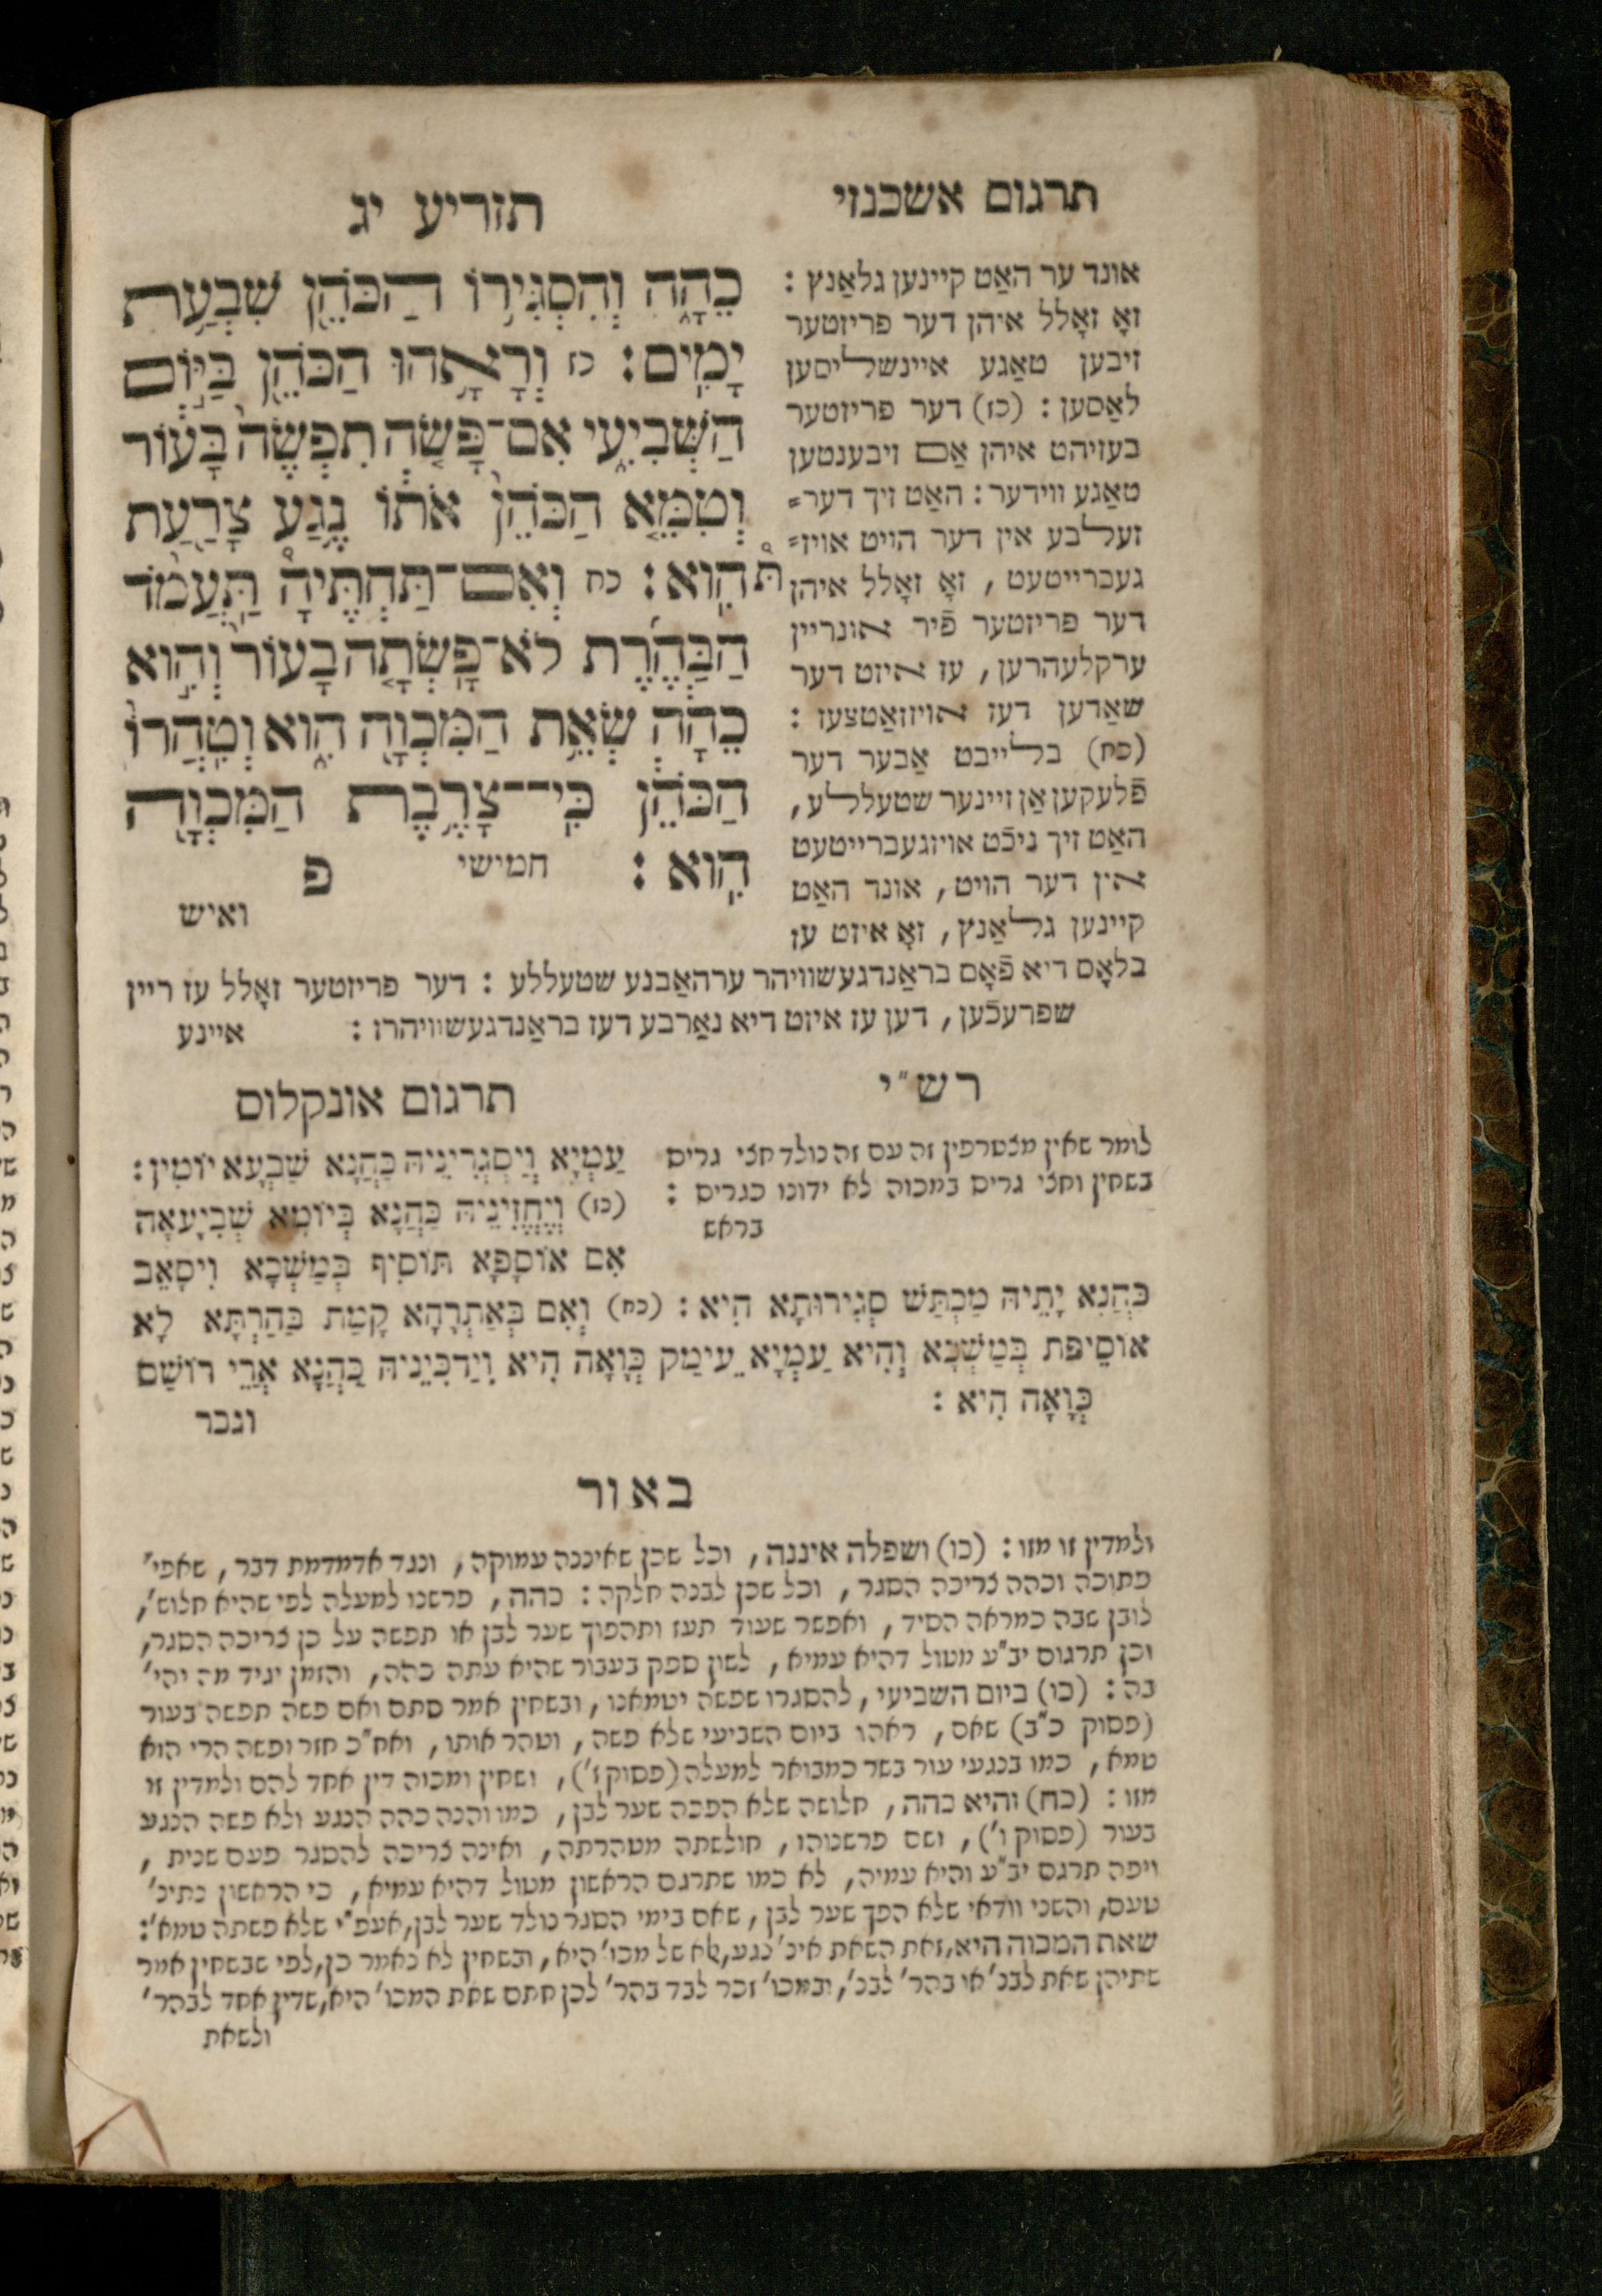 תרגום אשכנזי
תזריע יג
אונד ער האַט קיינען גלאַנץ :
זאָ זאָלל איהן דער פריזטער
זיבען טאַגע איינשליסען
לאַסען : (כז) דער פריזטער
בעזיהט איהן אַם זיבענטען
טאַגע ווידער : האַט זיך דער=
זעלבע אין דער הויט אויז=
געברייטעט , זאָ זאָלל איהן
דער פריזטער פֿיר אונריין
ערקלעהרען , עז איזט דער
שאַדען דעז אויזזאַטצעז :
(כח) בלייבט אַבער דער
פֿלעקען אַן זיינער שטעללע ,
האַט זיך ניכֿט אויזגעברייטעט
אין דער הויט , אונד האַט
קיינען גלאַנץ , זאָ איזט עז
בלאָס דיא פֿאָם בראַנדגעשוויהר ערהאַבנע שטעללע : דער פריזטער זאָלל עז ריין
שפרעכֿען , דען עז איזט דיא נאַרבע דעז בראַנדגעשוויהרז :
איינע
כֵּהָ֑ה וְהִסְגִּיר֥וֹ הַכֹּהֵ֖ן שִׁבְעַ֥ת
יָמִֽים : כז וְרָאָ֥הוּ הַכֹּהֵ֖ן בַּיּ֣וֹם
הַשְּׁבִיעִ֑י אִם־פָּשֹׂ֤ה תִפְשֶׂה֙ בָּע֔וֹר
וְטִמֵּ֤א הַכֹּהֵן֙ אֹת֔וֹ נֶ֥גַע צָרַ֖עַת
תּ֯ הִֽוא : כח וְאִם־תַּחְתֶּיהָ֩ תַעֲמֹ֨ד
הַבַּהֶ֜רֶת לֹא־פָשְׂתָ֤ה בָעוֹר֙ וְהִ֣וא
כֵהָ֔ה שְׂאֵ֥ת הַמִּכְוָ֖ה הִ֑וא וְטִֽהֲרוֹ֙
הַכֹּהֵ֔ן כִּֽי־צָרֶ֥בֶת הַמִּכְוָ֖ה
הִֽוא : חמישי פ
ואיש
רש"י
לומר שאין מצטרפין זה עם זה נולד חצי גריס
בשחין וחצי גריס במכוה לא ידונו כגריס :
בראש
תרגום אונקלוס
עַמְיָא וְיַסְגְּרִינֵיהּ כַּהֲנָא שַׁבְעָא יוֹמִין :
(כז) וְיֶחֱזִינֵיהּ כַּהֲנָא בְּיוֹמָא שְׁבִיעָאָה
אִם אוֹסָפָא תוֹסִיף בְּמַשְׁכָא וִיסָאֵב
כַּהֲנָא יָתֵיהּ מַכְתַּשׁ סְגִירוּתָא הִיא : (כח) וְאִם בְּאַתְרָהָא קָמַת בַּהַרְתָּא לָא
אוֹסֵיפַת בְּמַשְׁכָּא וְהִיא עַמְיָא עֵימַק כְּוָאָה הִיא וִידַכִּינֵיהּ כַּהֲנָא אֲרֵי רוֹשַׁם
כְּוָאָה הִיא :
וגבר
באור
ולמדין זו מזו : (כו) ושפלה איננה , וכל שכן שאיננה עמוקה , ונגד אדמדמת דבר , שאפי'
פתוכה וכהה צריכה הסגר , וכל שכן לבנה חלקה : כהה , פרשנו למעלה לפי שהיא חלוש' ,
לובן שבה כמראה הסיד , ואפשר שעוד תעז ותהפוך שער לבן או תפשה על כן צריכה הסגר ,
וכן תרגום יב"ע מטול דהיא עמיא , לשון ספק בעבור שהיא עתה כהה , והזמן יגיד מה יהי'
בה : (כז) ביום השביעי , להסגרו שפשה יטמאנו , ובשחין אמר סתם ואם פשה תפשה בעור
(פסוק כ"ב) שאם , ראהו ביום השביעי שלא פשה , וטהר אותו , ואח"כ חזר ופשה הרי הוא
טמא , כמו בנגעי עור בשר כמבואר למעלה (פסוק ז') , ושחין ומכוה דין אחד להם ולמדין זו
מזו : (כח) והיא כהה , חלושה שלא הפכה שער לבן , כמו והנה כהה הנגע ולא פשה הנגע
בעור (פסוק ו') , ושם פרשנוהו , חולשתה מטהרתה , ואינה צריכה להסגר פעם שנית ,
ויפה תרגם יב"ע והיא עמיה , לא כמו שתרגם הראשון מטול דהיא עמיא , כי הראשון נתינ'
טעם , והשני וודאי שלא הפך שער לבן , שאם בימי הסגר נולד שער לבן , אעפ"י שלא פשתה טמא' :
שאת המכוה היא , זאת השאת אינ' נגע , אלא של מכו' היא , ובשחין לא נאמר כן , לפי שבשחין אמר
שתיהן שאת לבנ' או בהר' לבנ' , ובמכו' זכר לבד בהר' לכן חתם שאת המכו' היא , שדין אחד לבהר'
ולשאת